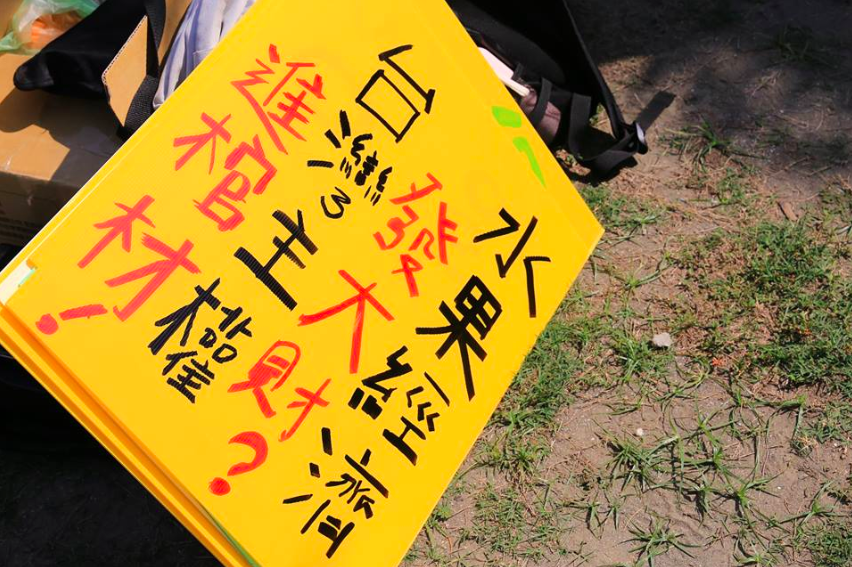 水果經濟
發大財?
台灣主權
進棺材!